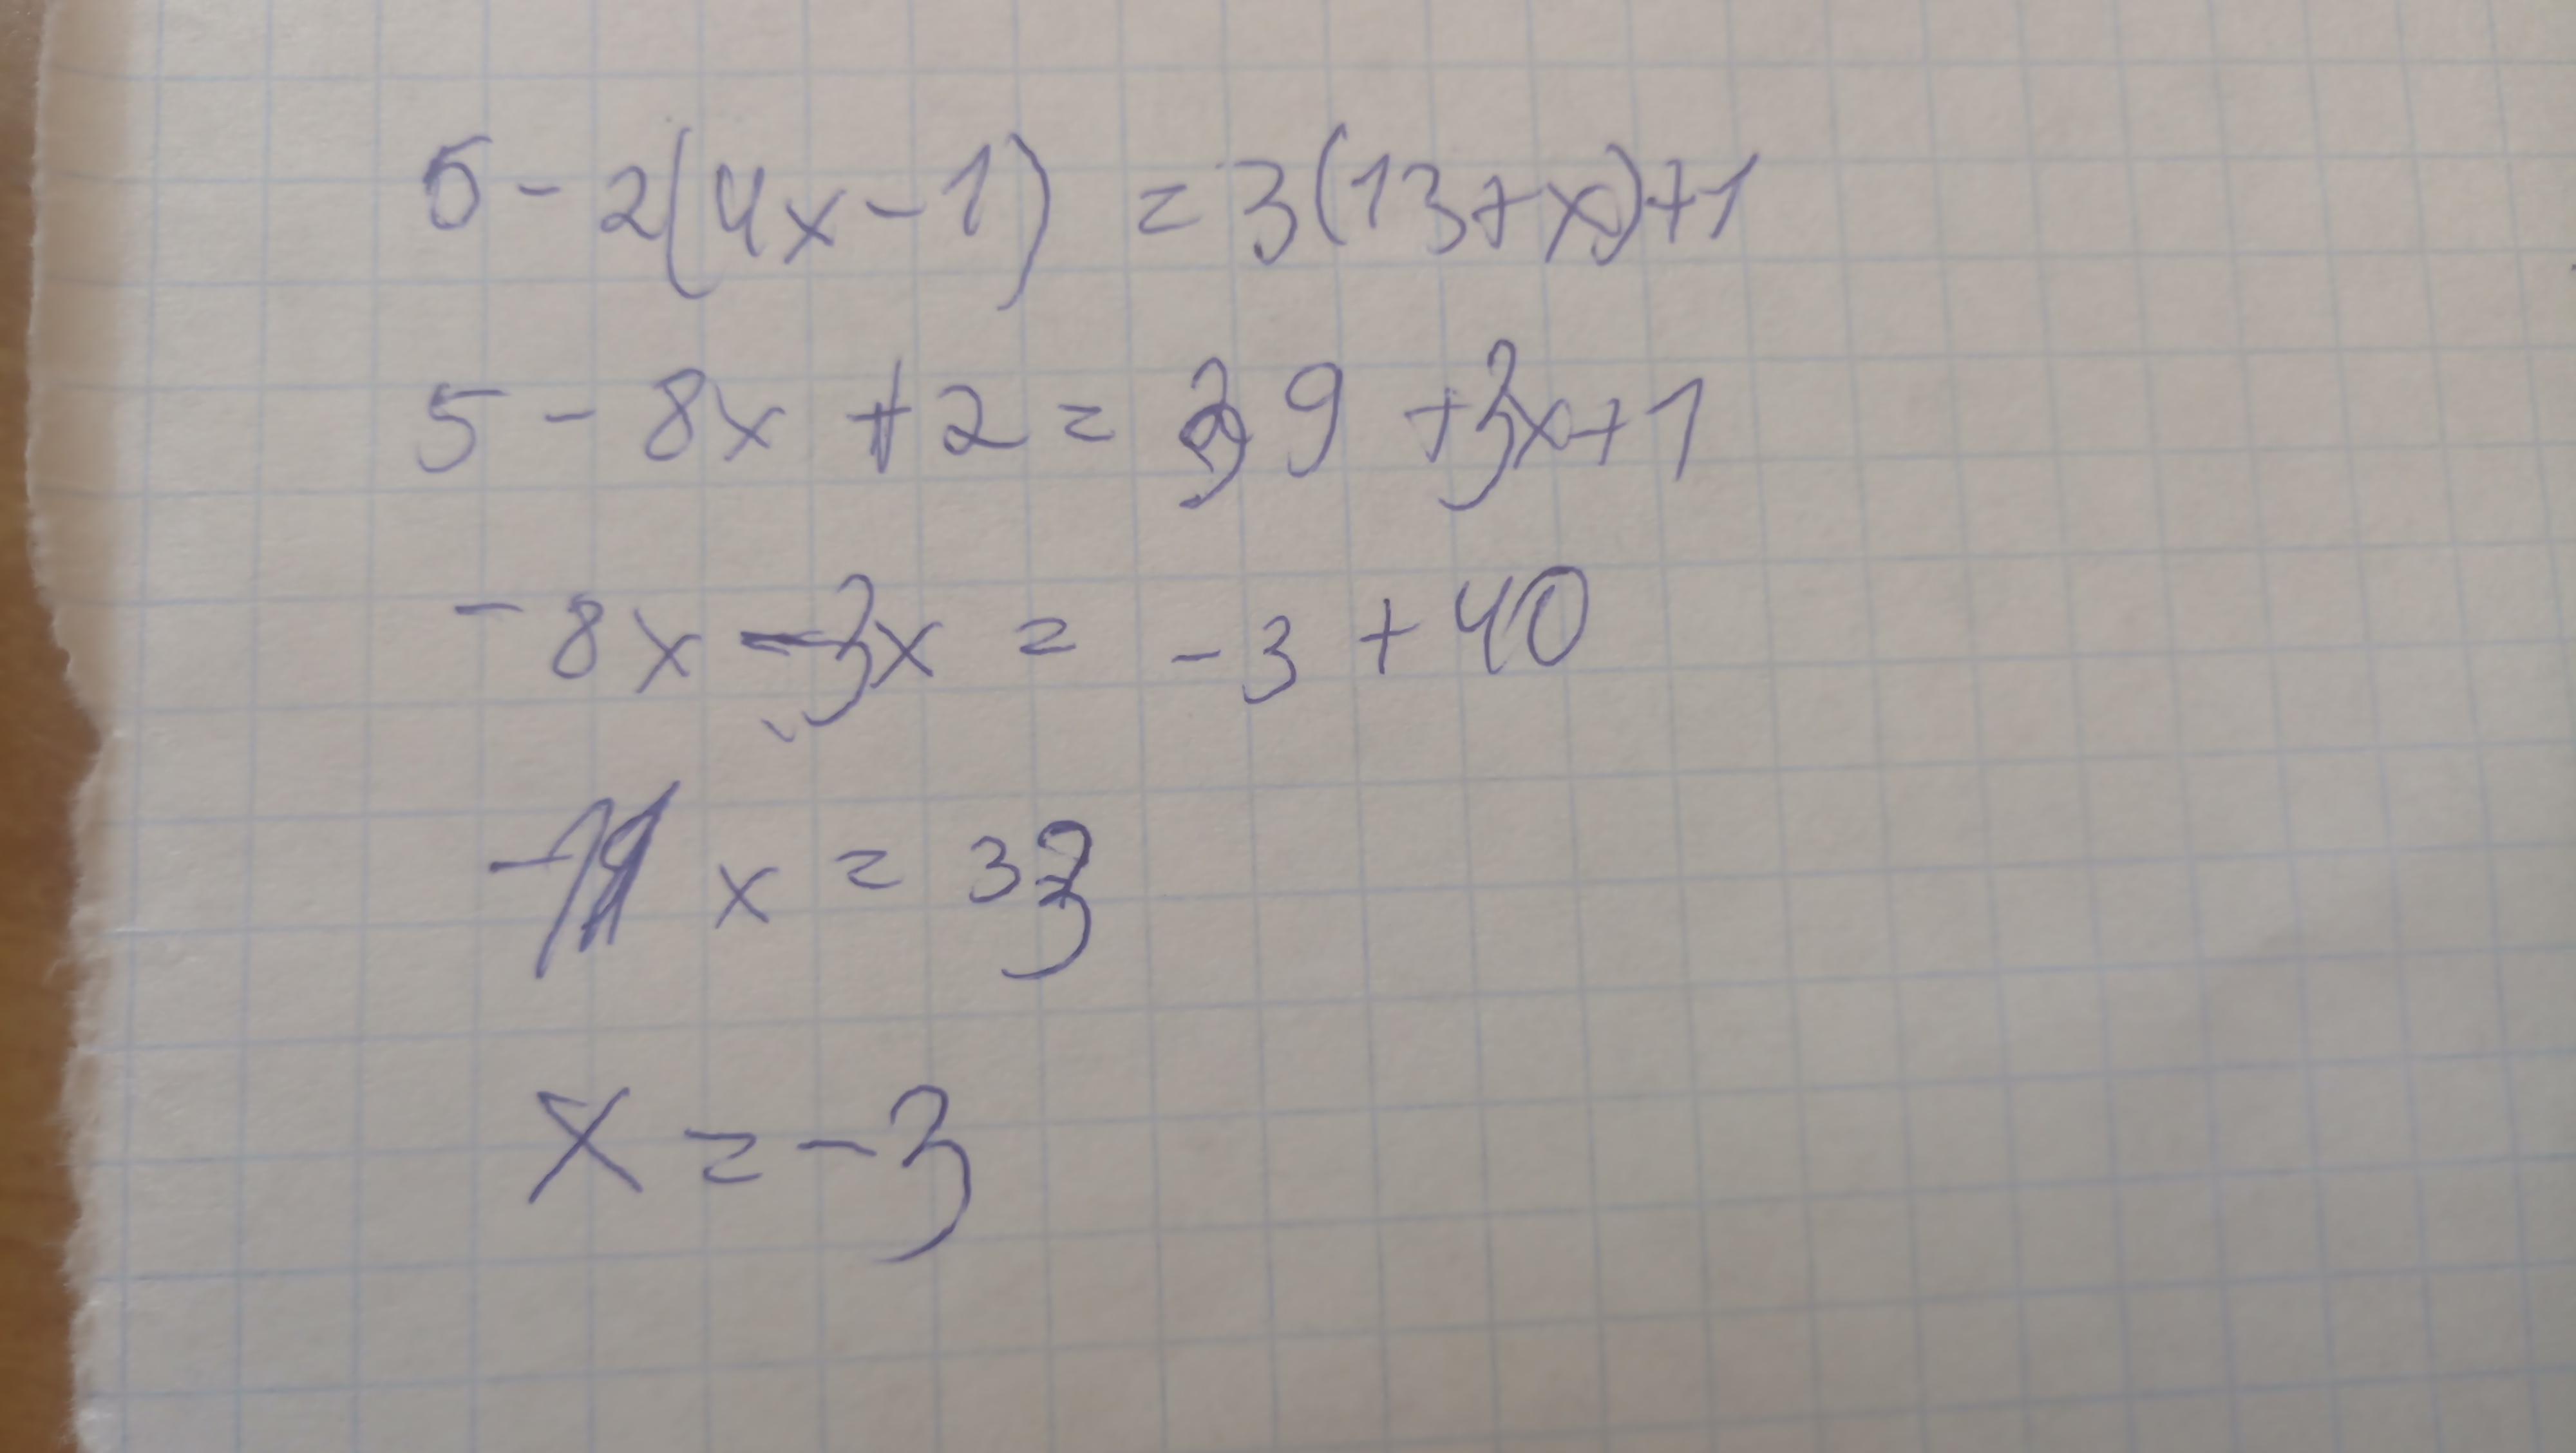 5 - 2(4x - 1) = 3(13 + x) + 1
5 - 8x + 2 = 39 + 3x + 1
- 8x - 3x = - 3 + 40
- 11 x = 33
x = - 3